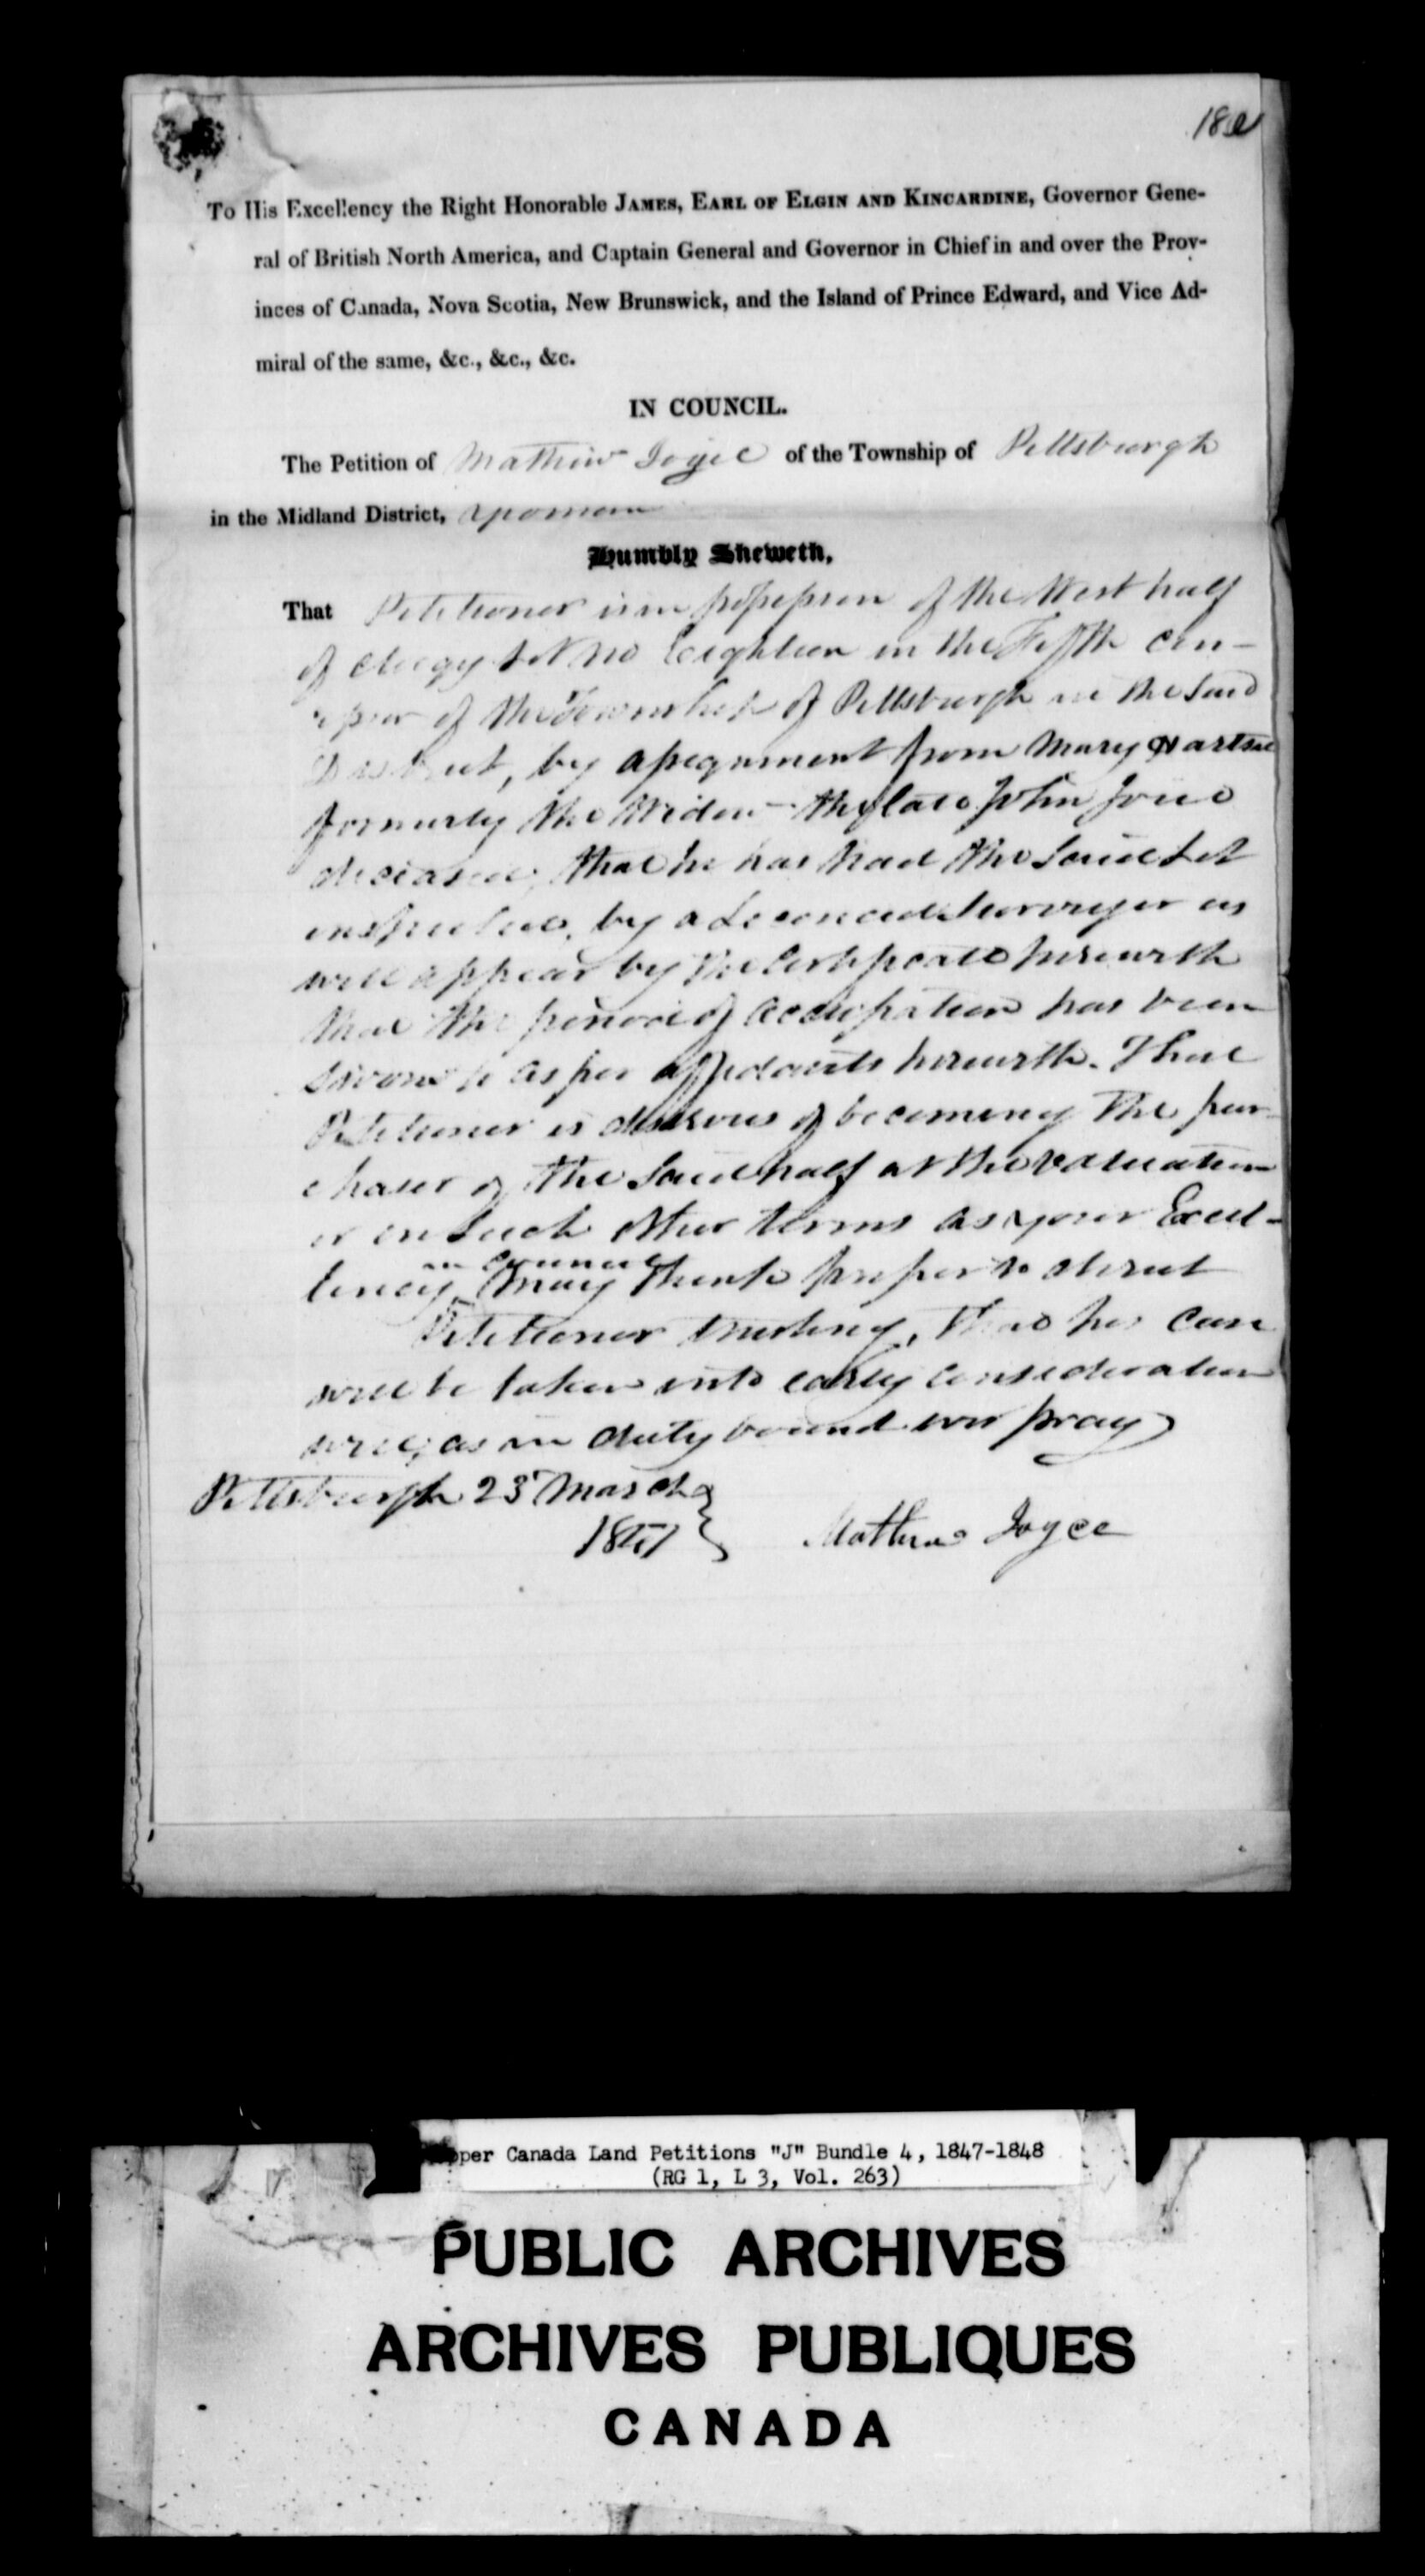 18e
To His Excellency the Right Honorable JAMES, EARL OF ELGIN AND KINCARDINE, Governor Gene-
ral of British North America, and Captain General and Governor in Chief in and over the Prov-
inces of Canada, Nova Scotia, New Brunswick, and the Island of Prince Edward, and Vice Ad-
miral of the same, &c., &c., &c.
IN COUNCIL.
The Petition of Mathew Joyce of the Township of Pittsburgh
in the Midland District, yeoman
Humbly Sheweth,
That Petitioner is in possession of the West half
of clergy Lot No Eighteen in the Fifth con-
cession of the Township of Pittsburgh in the said
District, by assignment from Mary
formerly the Widow the late John Joice
deceased, that he has had the said Lot
inspected, by a Licenced Surveyor as
will appear by the Certificate herewith
that the period of occupation has been
sworn to as per affidavits herewith. That
Petitioner is desirous of becoming the pur-
chaser of the said half at the valuation
or on such other terms as your Excel-
lency in Council may think proper to direct
Petitioner trusting, that his case
will be taken into early consideration
will, as in duty bound ever pray
Pittsburgh 23 March
1847 Mathew Joyce
Upper Canada Land Petitions "J" Bundle 4, 1847-1848
(RG 1, L 3, Vol. 263)
PUBLIC ARCHIVES
ARCHIVES PUBLIQUES
CANADA